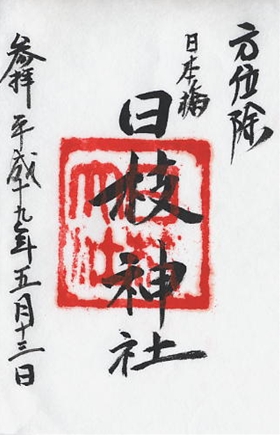 方位除
日本橋
日枝神社
参拝
平成十九年五月十三日